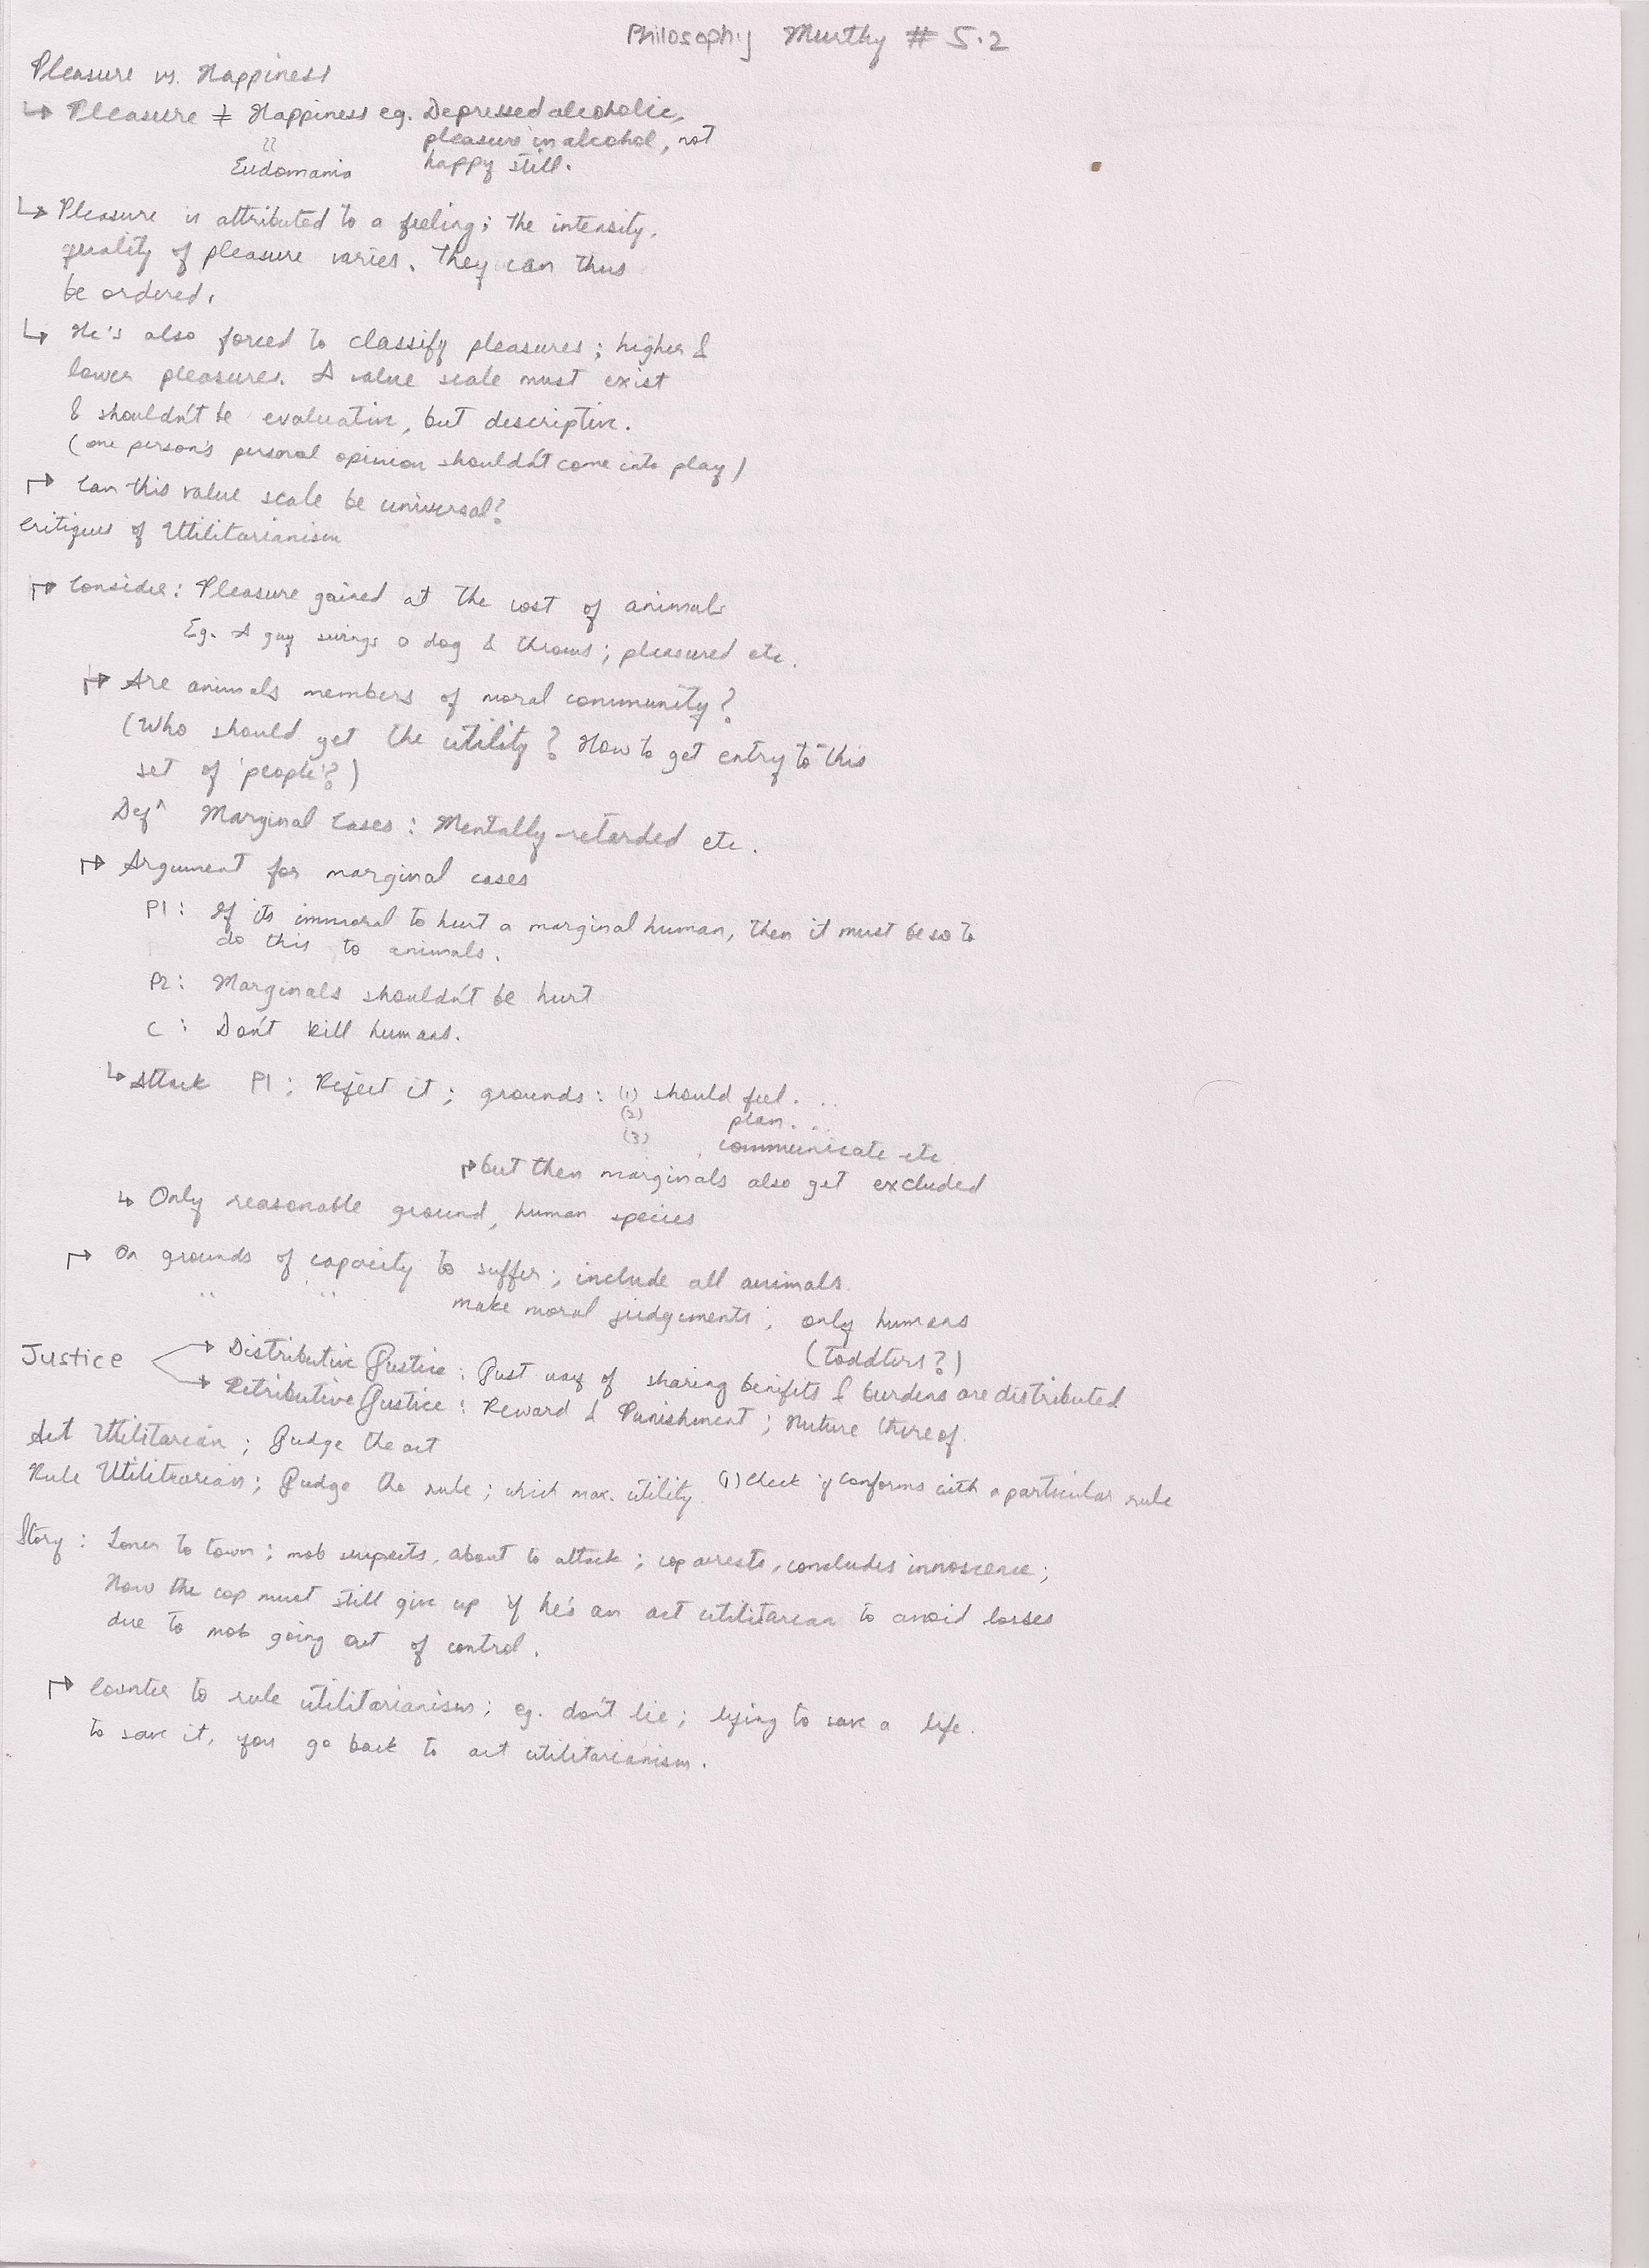 Philosophy Murthy # 5.2
Pleasure vs. Happiness
↳ Pleasure ≠ Happiness eg. Depressed alcoholic,
pleasure in alcohol, not
Eudomania happy still.
↳ Pleasure is attributed to a feeling; the intensity,
quality of pleasure varies. They can thus
be ordered.
↳ He's also forced to classify pleasures; higher &
lower pleasures. A value scale must exist
& shouldn't be evaluative, but descriptive.
(one person's personal opinion shouldn't come into play)
↱ Can this value scale be universal?
Critiques of Utilitarianism
↱ Consider: Pleasure gained at the cost of animals
Eg. A guy swings a dog & throws; pleasured etc.
↱ Are animals members of moral community?
(Who should get the utility? How to get entry to this
set of 'people'?)
Def^ Marginal Cases: Mentally-retarded etc.
↱ Argument for marginal cases
P1: If its immoral to hurt a marginal human, then it must be so to
do this to animals.
P2: Marginals shouldn't be hurt
C: Don't kill humans.
↳ Attack P1; Reject it; grounds: (1) should feel...
(2) plan...
(3) communicate etc
↱ but then marginals also get excluded
↳ Only reasonable ground, human species
↱ On grounds of capacity to suffer; include all animals.
" " make moral judgements; only humans
(toddlers?)
Justice → Distributive Justice: Just way of sharing benifits & burdens are distributed
→ Retributive Justice: Reward & Punishment; Nuture thereof.
Act Utilitarian; Judge the act
Rule Utilitrarian; Judge the rule; which max. utility. (1) Check if conforms with a particular rule
Story: Loner to town; mob suspects, about to attack; cop arrests, concludes innoscence;
Now the cop must still give up if he's an act utilitarean to avoid losses
due to mob going out of control.
↱ Counter to rule utilitarianism; eg. don't lie; lying to save a life.
to save it, you go back to act utilitarianism.